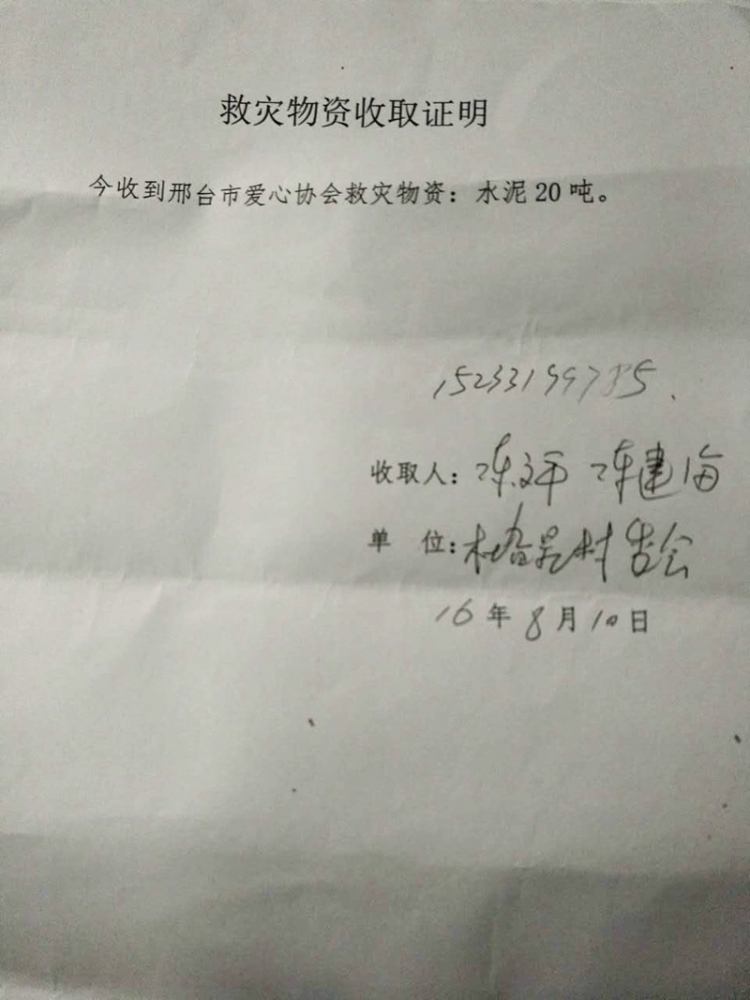 救灾物资收取证明
今收到邢台市爱心协会救灾物资：水泥20吨。
收取人：陈 平 陈建海
单 位： 村 会
16年8月10日